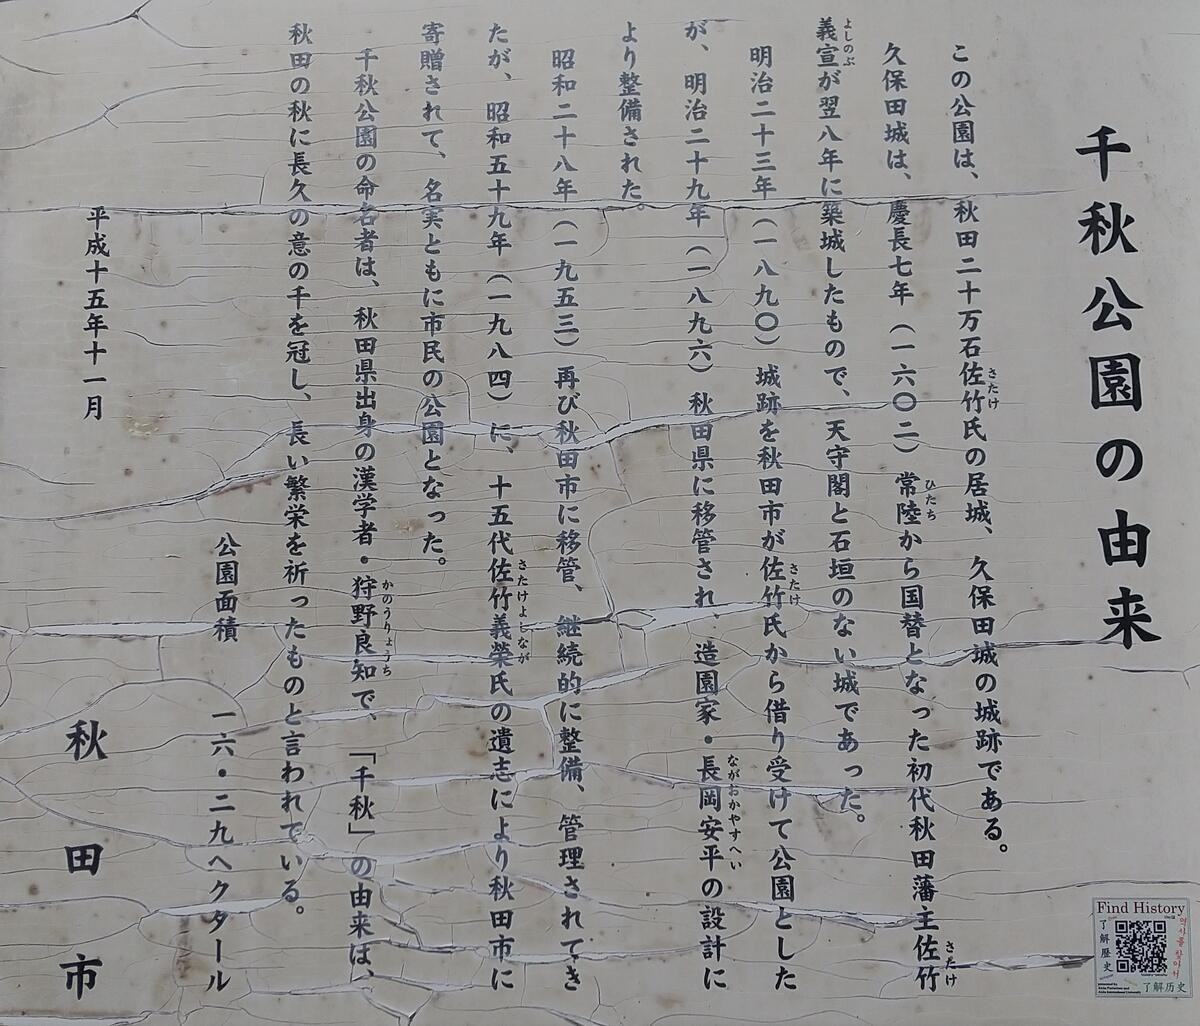 千秋公園の由来
この公園は、秋田二十万石佐竹氏の居城、久保田城の城跡である。
久保田城は、慶長七年（一六〇二）常陸から国替となった初代秋田藩主佐竹
義宣が翌八年に築城したもので、天守閣と石垣のない城であった。
明治二十三年（一八九〇）城跡を秋田市が佐竹氏から借り受けて公園とした
が、明治二十九年（一八九六）秋田県に移管され、造園家・長岡安平の設計に
より整備された。
昭和二十八年（一九五三）再び秋田市に移管、継続的に整備、管理されてき
たが、昭和五十九年（一九八四）に、十五代佐竹義榮氏の遺志により秋田市に
寄贈されて、名実ともに市民の公園となった。
千秋公園の命名者は、秋田県出身の漢学者・狩野良知で、「千秋」の由来は、
秋田の秋に長久の意の千を冠し、長い繁栄を祈ったものと言われている。
公園面積　一六・二九ヘクタール
平成十五年十一月
秋田市
さたけ
ひたち
さたけ
よしのぶ
さたけ
ながおかやすへい
さたけよしなが
かのうりょうち
Find History
了解歴史
역사를 찾아서
了解历史